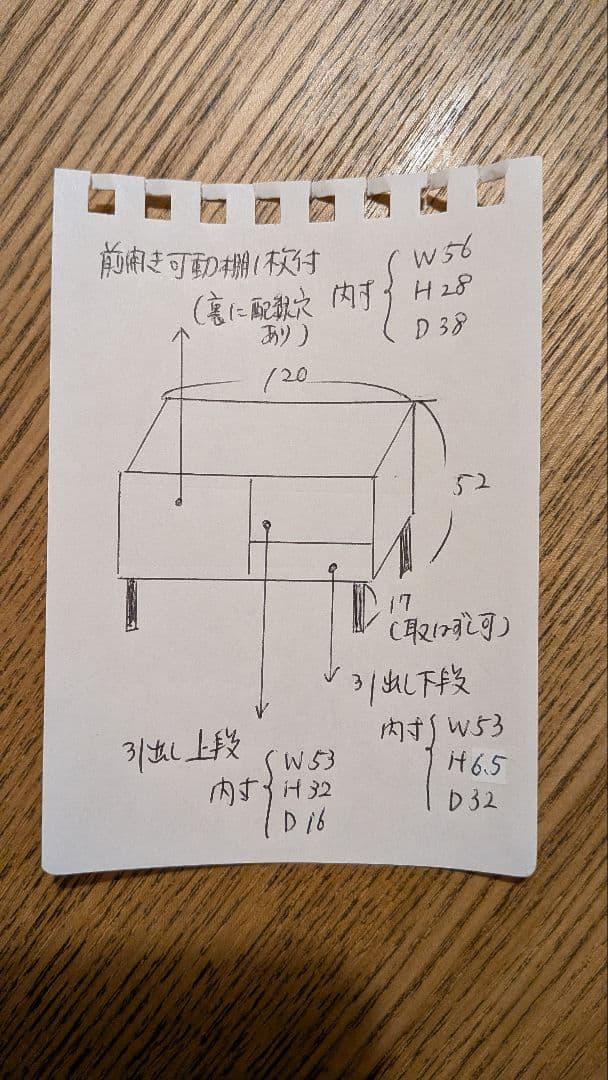 前開き可動棚1枚付
(裏に配線穴
あり)
内寸
W56
H28
D38
120
52
17
(取はずし可)
引出し下段
内寸
W53
H6.5
D32
引出し上段
内寸
W53
H32
D16